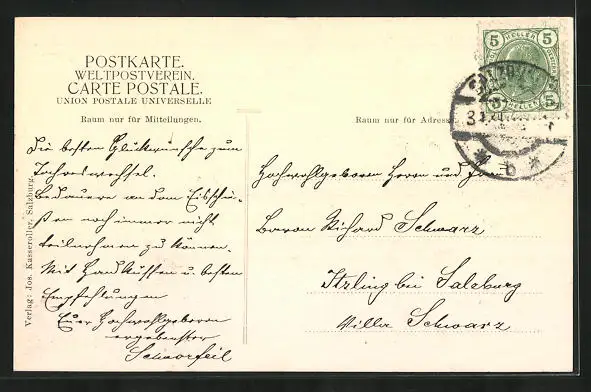 POSTKARTE.
WELTPOSTVEREIN.
CARTE POSTALE.
UNION POSTALE UNIVERSELLE
Raum nur für Mitteilungen.
Die besten Glückwünsche zum
Jahreswechsel.
Bedauere an dem Eisschie-
ßen noch immer nicht
teilnehmen zu können.
Mit Handküssen u. besten
Empfehlungen
Euer Hochwohlgeboren
ergebenster
Verlag: Jos. Kasseroller, Salzburg.
5 HELLER 5
Raum nur für Adresse
Hochwohlgeboren Herrn und Frau
Baron Richard Schwarz
Itzling bei Salzburg
Villa Schwarz